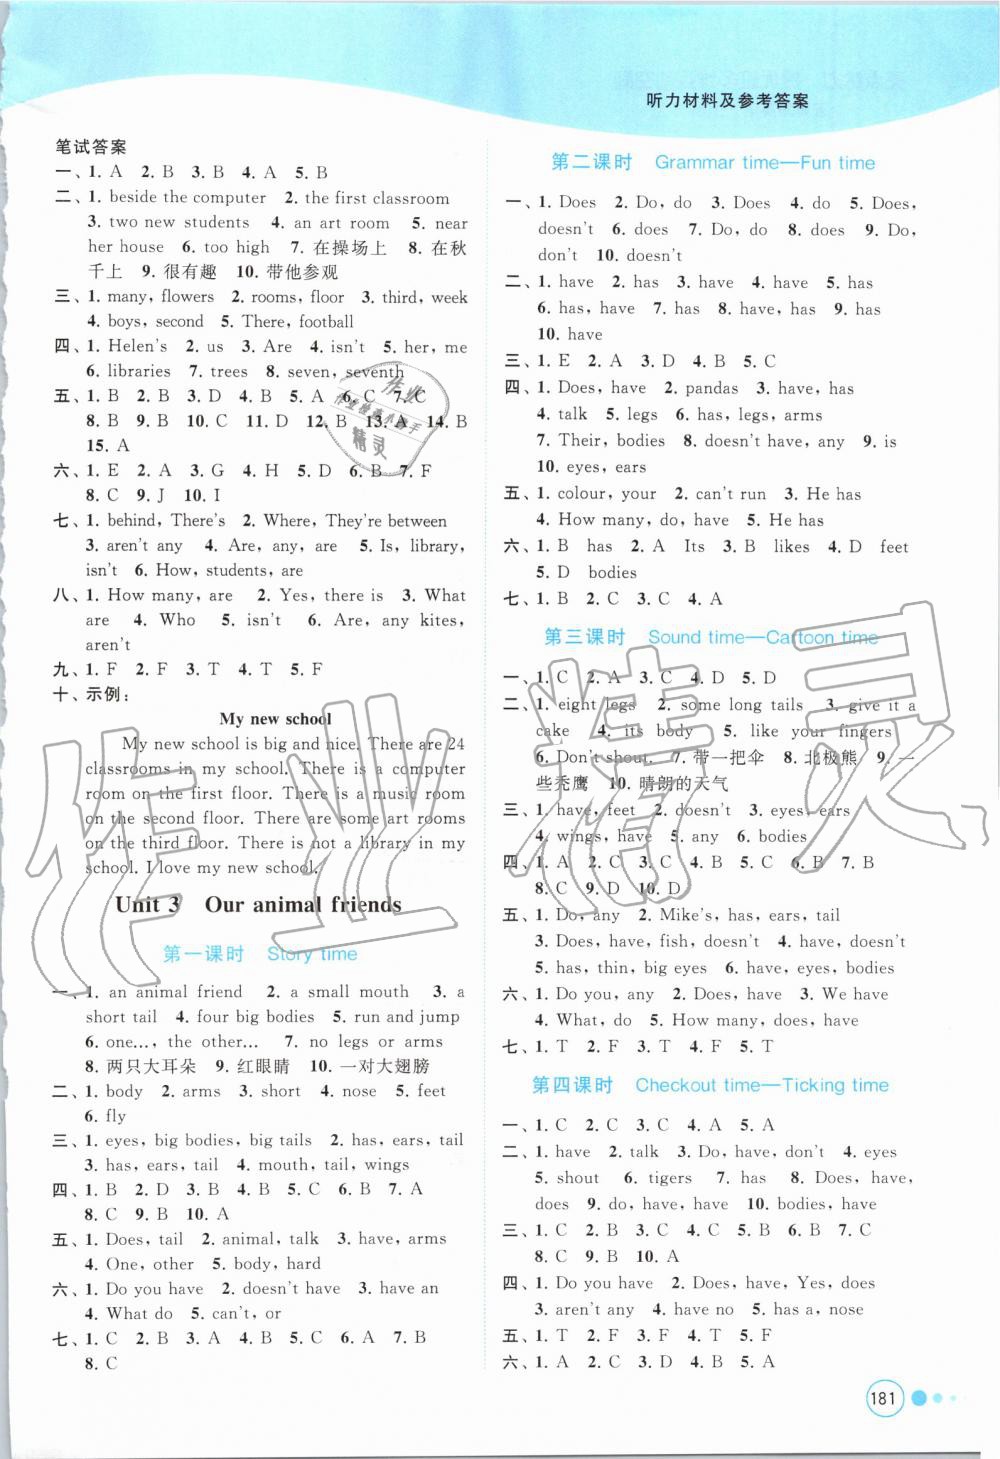 听力材料及参考答案
笔试答案
一、1. A 2. B 3. B 4. A 5. B
二、1. beside the computer 2. the first classroom
3. two new students 4. an art room 5. near
her house 6. too high 7. 在操场上 8. 在秋
千上 9. 很有趣 10. 带他参观
三、1. many, flowers 2. rooms, floor 3. third, week
4. boys, second 5. There, football
四、1. Helen's 2. us 3. Are 4. isn't 5. her, me
6. libraries 7. trees 8. seven, seventh
五、1. B 2. B 3. D 4. B 5. A 6. C 7. C
8. B 9. B 10. C 11. D 12. B 13. A 14. B
15. A
六、1. E 2. A 3. G 4. H 5. D 6. B 7. F
8. C 9. J 10. I
七、1. behind, There's 2. Where, They're between
3. aren't any 4. Are, any, are 5. Is, library,
isn't 6. How, students, are
八、1. How many, are 2. Yes, there is 3. What
are 4. Who 5. isn't 6. Are, any kites,
aren't
九、1. F 2. F 3. T 4. T 5. F
十、示例：
My new school
My new school is big and nice. There are 24
classrooms in my school. There is a computer
room on the first floor. There is a music room
on the second floor. There are some art rooms
on the third floor. There is not a library in my
school. I love my new school.
Unit 3 Our animal friends
第一课时 Story time
一、1. an animal friend 2. a small mouth 3. a
short tail 4. four big bodies 5. run and jump
6. one..., the other... 7. no legs or arms
8. 两只大耳朵 9. 红眼睛 10. 一对大翅膀
二、1. body 2. arms 3. short 4. nose 5. feet
6. fly
三、1. eyes, big bodies, big tails 2. has, ears, tail
3. has, ears, tail 4. mouth, tail, wings
四、1. B 2. D 3. B 4. B 5. B 6. B 7. A
8. C 9. B 10. A
五、1. Does, tail 2. animal, talk 3. have, arms
4. One, other 5. body, hard
六、1. Do you have 2. doesn't have 3. have an
4. What do 5. can't, or
七、1. C 2. B 3. A 4. B 5. C 6. A 7. B
8. C
第二课时 Grammar time—Fun time
一、1. Does 2. Do, do 3. Does 4. do 5. Does,
doesn't 6. does 7. Do, do 8. does 9. Do,
don't 10. doesn't
二、1. have 2. has 3. have 4. have 5. has
6. has, have 7. has 8. have, has 9. has
10. have
三、1. E 2. A 3. D 4. B 5. C
四、1. Does, have 2. pandas 3. have, has
4. talk 5. legs 6. has, legs, arms
7. Their, bodies 8. don't have, any 9. is
10. eyes, ears
五、1. colour, your 2. can't run 3. He has
4. How many, do, have 5. He has
六、1. B has 2. A Its 3. B likes 4. D feet
5. D bodies
七、1. B 2. C 3. C 4. A
第三课时 Sound time—Cartoon time
一、1. C 2. A 3. C 4. D 5. D
二、1. eight legs 2. some long tails 3. give it a
cake 4. its body 5. like your fingers
6. Don't shout. 7. 带一把伞 8. 北极熊 9. 一
些秃鹰 10. 晴朗的天气
三、1. have, feet 2. doesn't 3. eyes, ears
4. wings, have 5. any 6. bodies
四、1. A 2. C 3. C 4. B 5. C 6. B 7. B
8. C 9. D 10. D
五、1. Do, any 2. Mike's, has, ears, tail
3. Does, have, fish, doesn't 4. have, doesn't
5. has, thin, big eyes 6. don't, have, bodies
六、1. Do you, any 2. Does, have 3. We have
4. What, do 5. How many, does, have
七、1. T 2. F 3. F 4. F 5. T
第四课时 Checkout time—Ticking time
一、1. C 2. C 3. C 4. A 5. A
二、1. have 2. talk 3. Do, have, don't 4. eyes
5. shout 6. tigers 7. has 8. Does, have,
does 9. do, have, have 10. bodies, have
三、1. C 2. B 3. C 4. C 5. B 6. B 7. C
8. C 9. B 10. A
四、1. Do you have 2. Does, have, Yes, does
3. aren't any 4. have no 5. has a, nose
五、1. T 2. F 3. F 4. T 5. F
六、1. A 2. C 3. C 4. B 5. A
181
作业精灵